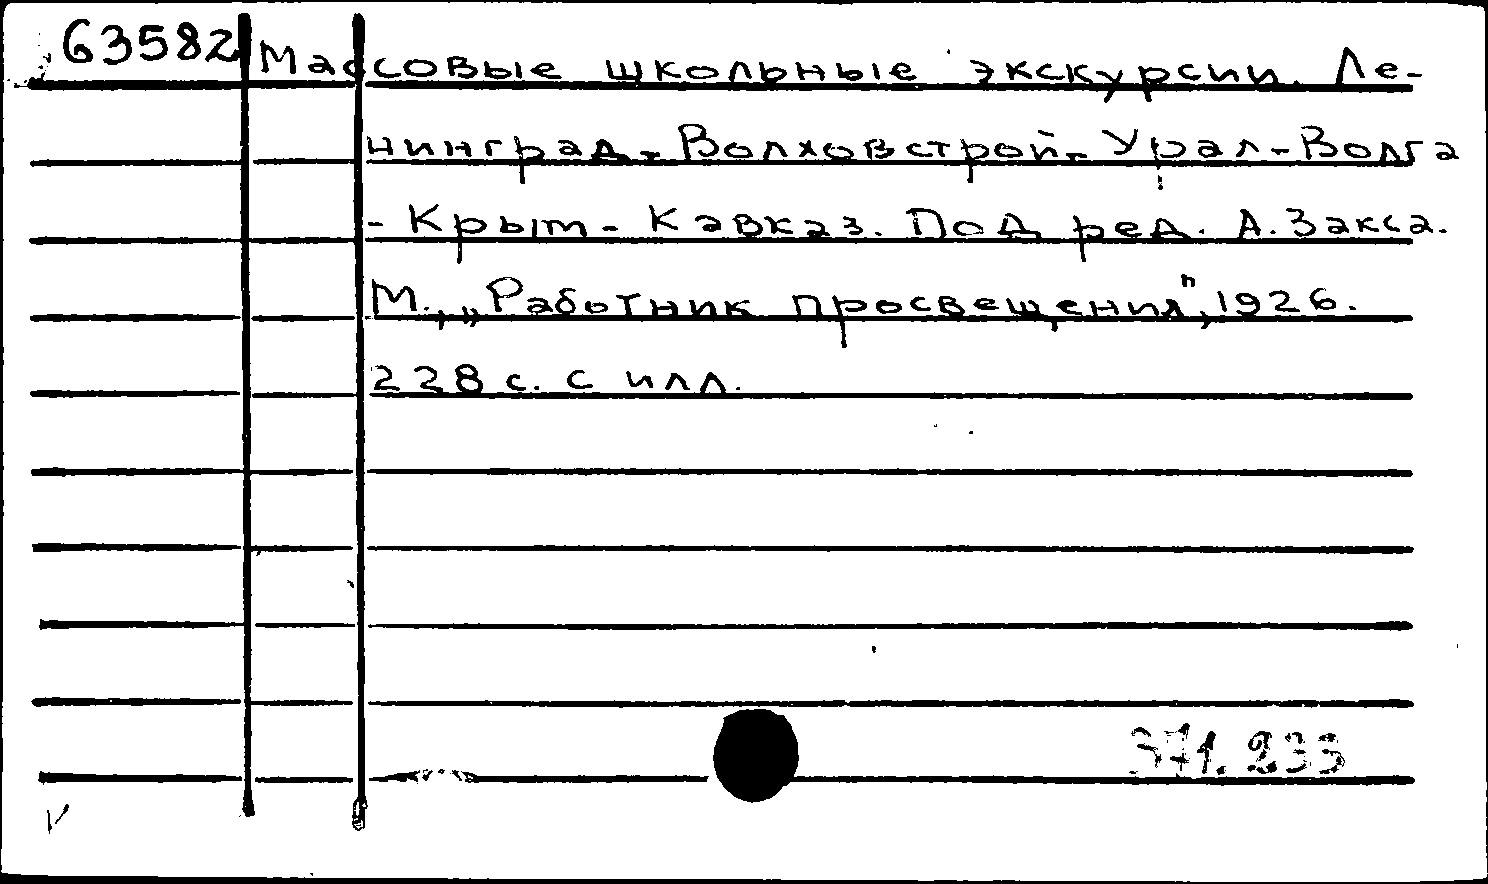 63582 Массовые школьные экскурсии. Ле-
нинград - Волховстрой - Урал - Волга
- Крым - Кавказ. Под ред. А. Закса.
М., „Работник просвещения", 1926.
228 с. с илл.
371.233